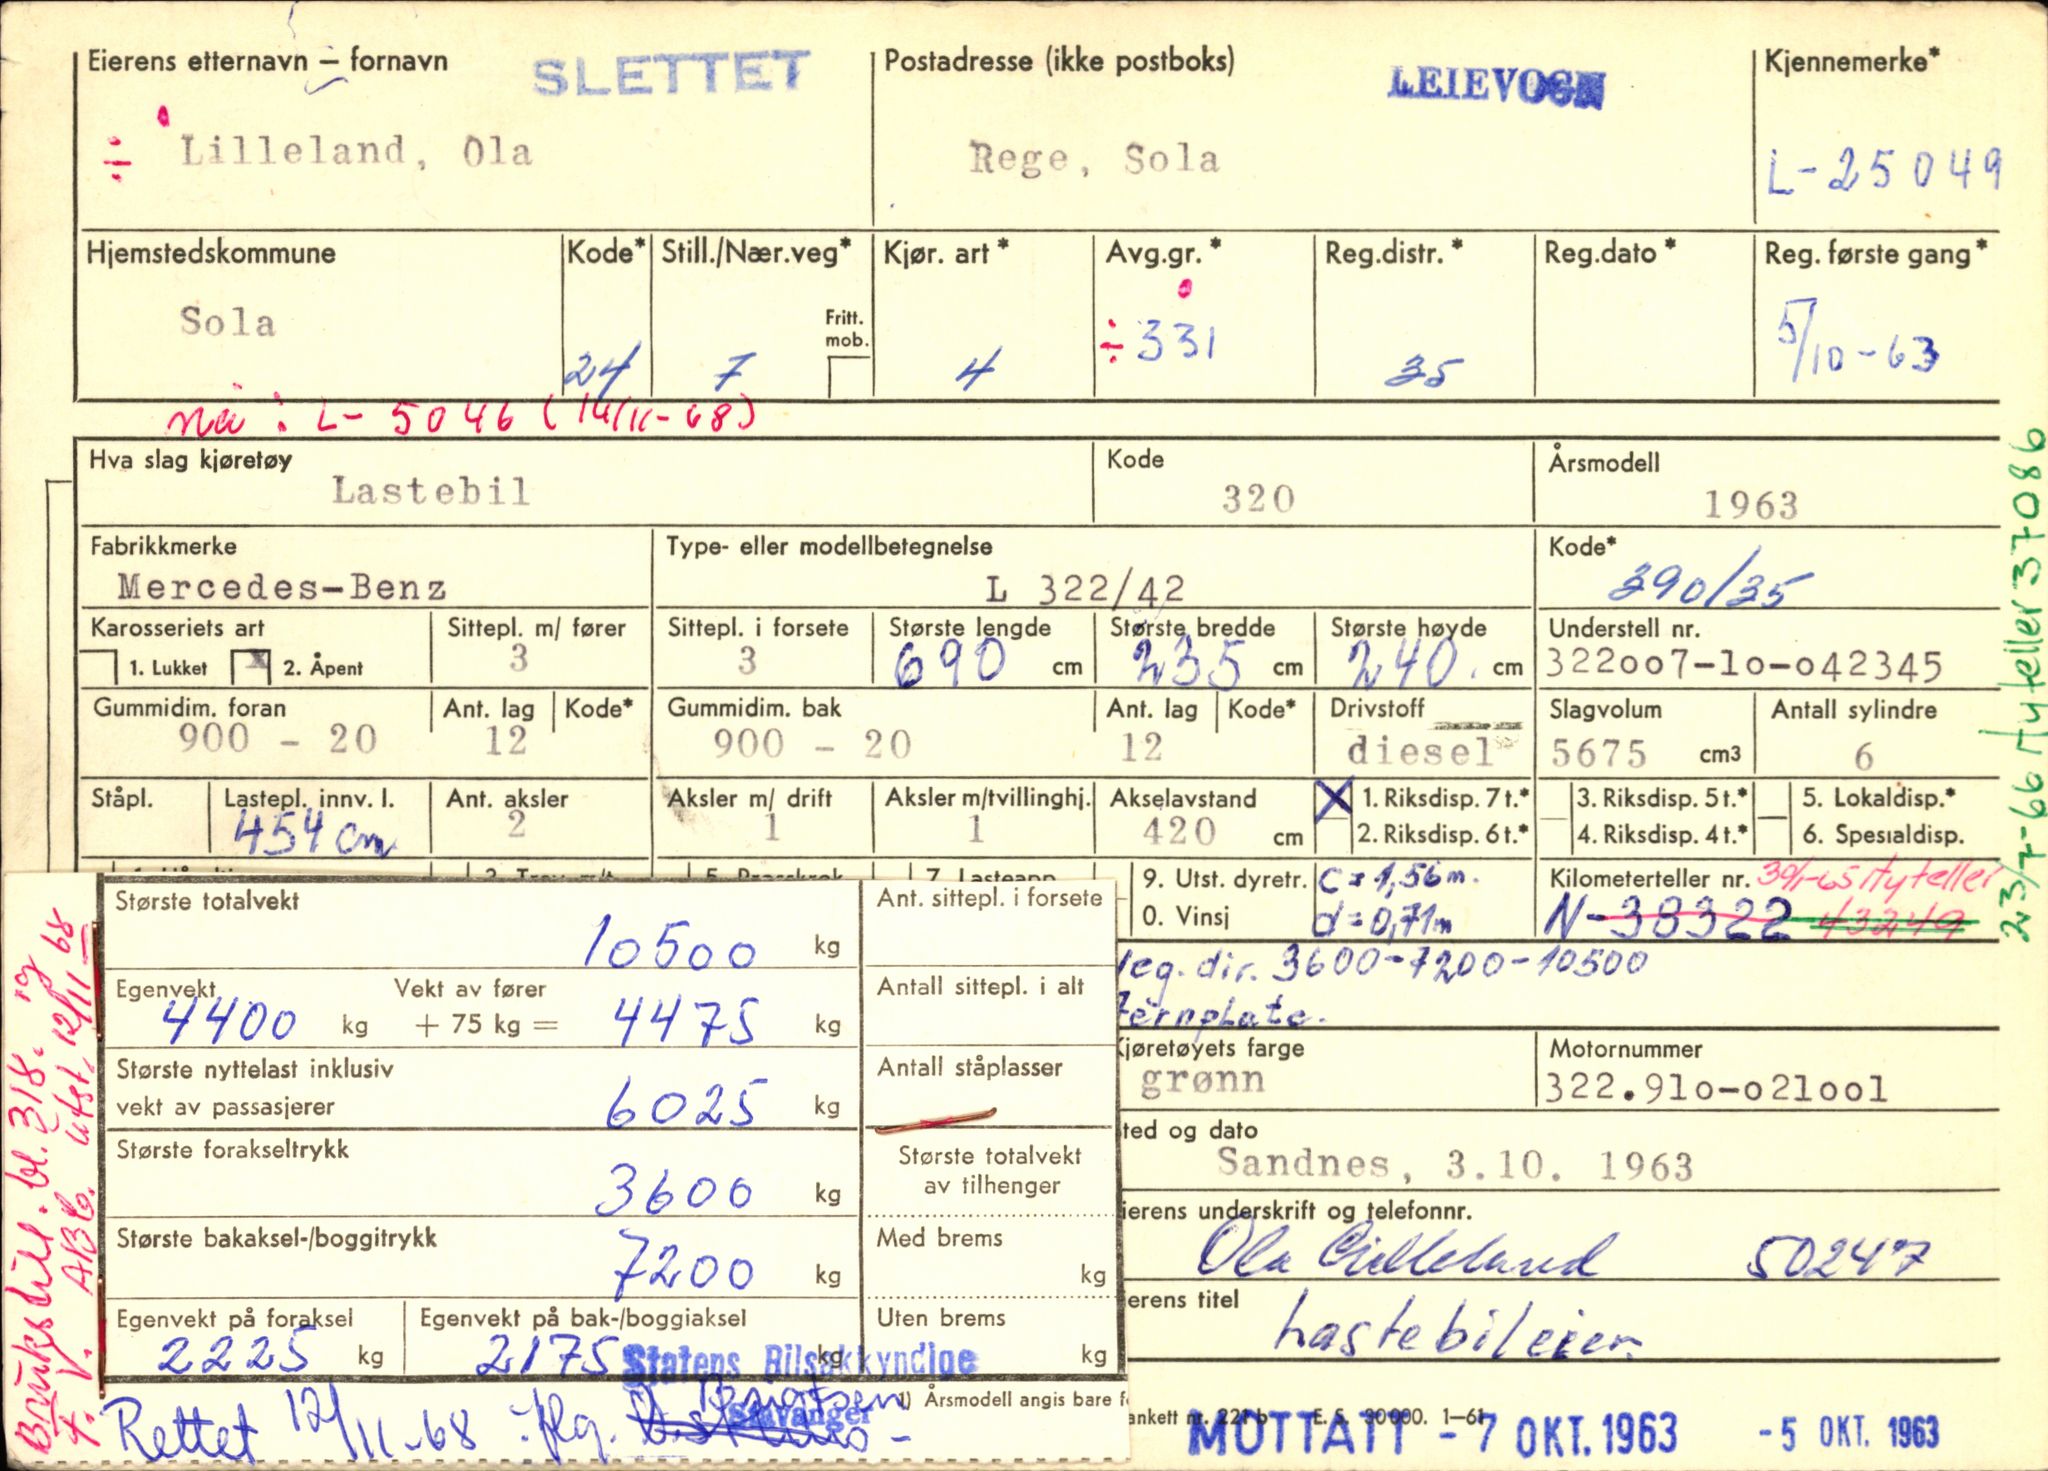 Eierens etternavn – fornavn SLETTET Postadresse (ikke postboks) LEIEVOGN Kjennemerke*
÷ Lilleland, Ola Rege, Sola L-25049
Hjemstedskommune Kode* Still./Nær.veg* Kjør. art* Avg.gr.* Reg.distr.* Reg.dato* Reg. første gang*
Sola 24 7 Fritt. mob. 4 ÷ 331 35 5/10-63
nå: L-5046 (14/11-68)
Hva slag kjøretøy Kode Årsmodell
Lastebil 320 1963
Fabrikkmerke Type- eller modellbetegnelse Kode*
Mercedes-Benz L 322/42 390/35
Karosseriets art Sittepl. m/ fører Sittepl. i forsete Største lengde Største bredde Største høyde Understell nr.
1. Lukket x 2. Åpent 3 3 690 cm 235 cm 240. cm 322oo7-lo-o42345
Gummidim. foran Ant. lag Kode* Gummidim. bak Ant. lag Kode* Drivstoff Slagvolum Antall sylindre
900 - 20 12 900 - 20 12 diesel 5675 cm3 6
Ståpl. Lastepl. innv. l. Ant. aksler Aksler m/ drift Aksler m/tvillinghj. Akselavstand X 1. Riksdisp. 7 t.* 3. Riksdisp. 5 t.* 5. Lokaldisp.*
454 cm 2 1 1 420 cm 2. Riksdisp. 6 t.* 4. Riksdisp. 4 t.* 6. Spesialdisp.
9. Utst. dyretr. c = 1,56 m. Kilometerteller nr. 30/1-65 Ny teller
0. Vinsj d = 0,71 m N-38322 43249
23/7-66 Ny teller 37086
Største totalvekt 10500 kg Ant. sittepl. i forsete
Veg. dir. 3600-7200-10500
Egenvekt 4400 kg Vekt av fører + 75 kg = 4475 kg Antall sittepl. i alt
Største nyttelast inklusiv vekt av passasjerer 6025 kg Antall ståplasser
Kjøretøyets farge Motornummer
grønn 322.9lo-o2loo1
Største forakseltrykk 3600 kg Største totalvekt av tilhenger
Sted og dato
Sandnes, 3.10. 1963
Største bakaksel-/boggitrykk 7200 kg Med brems kg
Eierens underskrift og telefonnr.
Ola Lilleland 50247
Egenvekt på foraksel 2225 kg Egenvekt på bak-/boggiaksel 2175 kg Uten brems kg
Eierens titel
Lastebileier.
Statens Bilsakkyndige
Stavanger
Rettet 12/11-68
1) Årsmodell angis bare f
ankett nr. 221 b E. S. 30000. 1–61
MOTTATT - 7 OKT. 1963 - 5 OKT. 1963
Brukstill. bl. 318. og
T. V. ABb. utst. 12/11 68